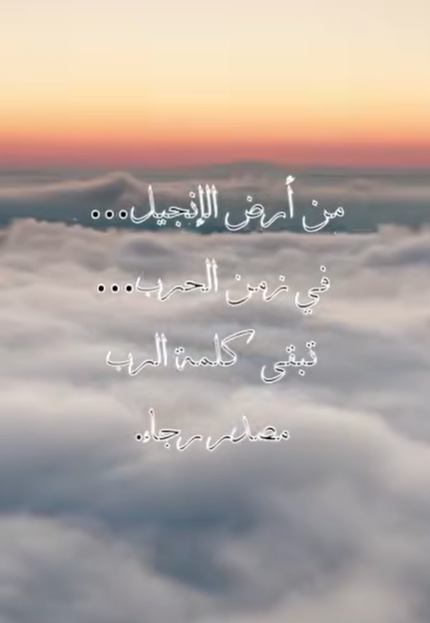 من أرض الإنجيل...
في زمن الحرب...
تبقى كلمة الرب
مصدر رجاء.